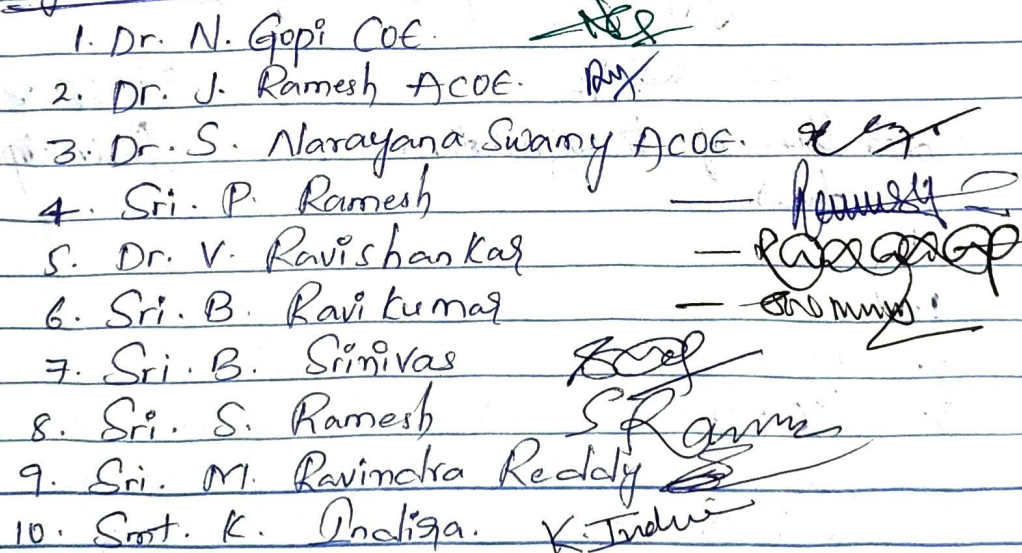 1. Dr. N. Gopi COE.
2. Dr. J. Ramesh ACOE.
3. Dr. S. Narayana Swamy ACOE.
4. Sri. P. Ramesh —
5. Dr. V. Ravishankar —
6. Sri. B. Ravi kumar —
7. Sri. B. Srinivas
8. Sri. S. Ramesh S Ram
9. Sri. M. Ravindra Reddy
10. Smt. K. Indira. K. Indira